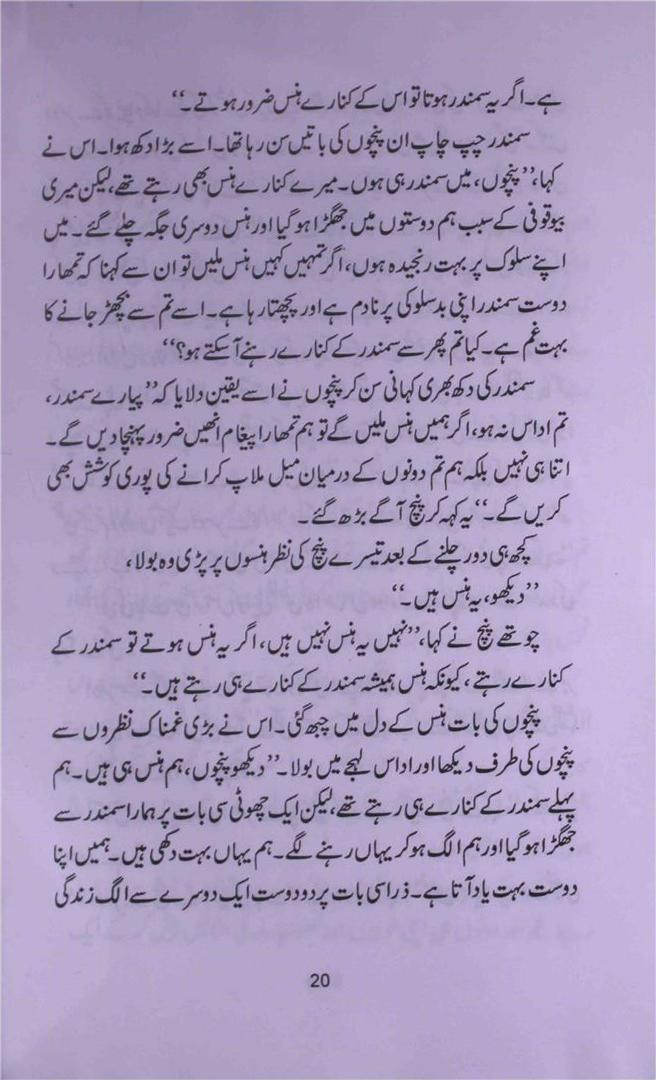 ہے۔ اگر یہ سمندر ہوتا تو اس کے کنارے ہنس ضرور ہوتے۔‘‘
سمندر چپ چاپ ان پنچوں کی باتیں سن رہا تھا۔ اسے بڑا دکھ ہوا۔ اس نے
کہا، ’’پنچوں، میں سمندر ہی ہوں۔ میرے کنارے ہنس بھی رہتے تھے، لیکن میری
بیوقوفی کے سبب ہم دوستوں میں جھگڑا ہوگیا اور ہنس دوسری جگہ چلے گئے۔ میں
اپنے سلوک پر بہت رنجیدہ ہوں، اگر تمہیں کہیں ہنس ملیں تو ان سے کہنا کہ تمھارا
دوست سمندر اپنی بدسلوکی پر نادم ہے اور پچھتا رہا ہے۔ اسے تم سے بچھڑ جانے کا
بہت غم ہے۔ کیا تم پھر سے سمندر کے کنارے رہنے آسکتے ہو؟‘‘
سمندر کی دکھ بھری کہانی سن کر پنچوں نے اسے یقین دلایا کہ ’’پیارے سمندر،
تم اداس نہ ہو، اگر ہمیں ہنس ملیں گے تو ہم تمھارا پیغام انھیں ضرور پہنچا دیں گے۔
اتنا ہی نہیں بلکہ ہم تم دونوں کے درمیان میل ملاپ کرانے کی پوری کوشش بھی
کریں گے۔‘‘ یہ کہہ کر پنچ آگے بڑھ گئے۔
کچھ ہی دور چلنے کے بعد تیسرے پنچ کی نظر ہنسوں پر پڑی وہ بولا،
’’دیکھو، یہ ہنس ہیں۔‘‘
چوتھے پنچ نے کہا، ’’نہیں یہ ہنس نہیں ہیں، اگر یہ ہنس ہوتے تو سمندر کے
کنارے رہتے، کیونکہ ہنس ہمیشہ سمندر کے کنارے ہی رہتے ہیں۔‘‘
پنچوں کی بات ہنس کے دل میں چبھ گئی۔ اس نے بڑی غمناک نظروں سے
پنچوں کی طرف دیکھا اور اداس لہجے میں بولا۔ ’’دیکھو پنچوں، ہم ہنس ہی ہیں۔ ہم
پہلے سمندر کے کنارے ہی رہتے تھے، لیکن ایک چھوٹی سی بات پر ہمارا سمندر سے
جھگڑا ہوگیا اور ہم الگ ہوکر یہاں رہنے لگے۔ ہم یہاں بہت دکھی ہیں۔ ہمیں اپنا
دوست بہت یاد آتا ہے۔ ذرا سی بات پر دو دوست ایک دوسرے سے الگ زندگی
20